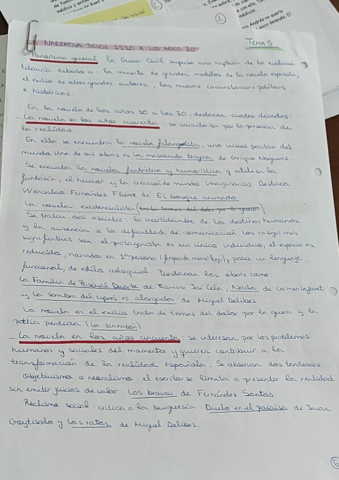 NARRATIVA DESDE 1940 A LOS AÑOS 70 Tema 5
Panorama general: la Guerra Civil impuso una ruptura de la evolución
literaria debido a: la muerte de grandes modelos de la novela española,
el exilio de otros grandes autores, las nuevas circunstancias políticas
e históricas.
En la novela de los años 30 a los 70, destacan cuatro décadas.
- La novela en los años cuarenta: se caracteriza por la presencia de
la realidad.
En ella se encuentra: la novela falangista, una visión positiva del
mundo. Una de sus obras es La mascarada trágica de Enrique Noguera.
Se encuentra la novela fantástica y humorística y utiliza la
fantasía, el humor y la creación de mundos imaginarios. Destaca
Wenceslao Fernández Flórez de El bosque animado.
La novela existencialista
Se tratan dos asuntos: la incertidumbre de los destinos humanos
y la ausencia o la dificultad de comunicación. Los rasgos más
significativos son: el protagonista es un único individuo, el espacio es
reducido, narrados en 1ª persona posee un lenguaje
funcional, de estilo coloquial. Destacan las obras como
La Familia de Pascual Duarte de Camilo José Cela, Nada de Carmen Laforet
y La sombra del ciprés es alargada de Miguel Delibes.
La novela en el exilio trata de temas del dolor por la guerra y la
patria perdida (La sinrazón)
- La novela en los años cincuenta: se interesan por los problemas
humanos y sociales del momento y quieren contribuir a la
transformación de la realidad española. Se observan dos tendencias:
Objetivismo o neorrealismo: el escritor se limita a presentar la realidad
sin emitir juicios de valor. Los bravos de Fernández Santos.
Realismo social: critica a la burguesía. Duelo en el paraíso de Juan
Goytisolo y Las ratas de Miguel Delibes.